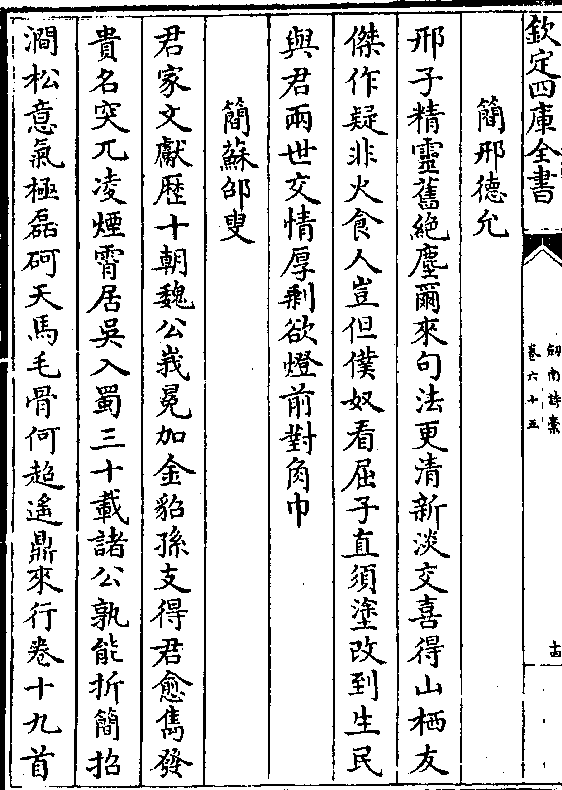 欽定四庫全書
劒南詩槀
卷六十五
古
簡邢德允
邢子精靈舊絕塵爾來句法更清新淡交喜得山栖友
傑作疑非火食人豈但僕奴看屈子直須塗改到生民
與君兩世交情厚剩欲燈前對角巾
簡蘇邵叟
君家文獻歴十朝魏公峩冕加金貂孫支得君愈雋發
貴名突兀凌煙霄居吳入蜀三十載諸公孰能折簡招
澗松意氣極磊砢天馬毛骨何超遙鼎來行卷十九首